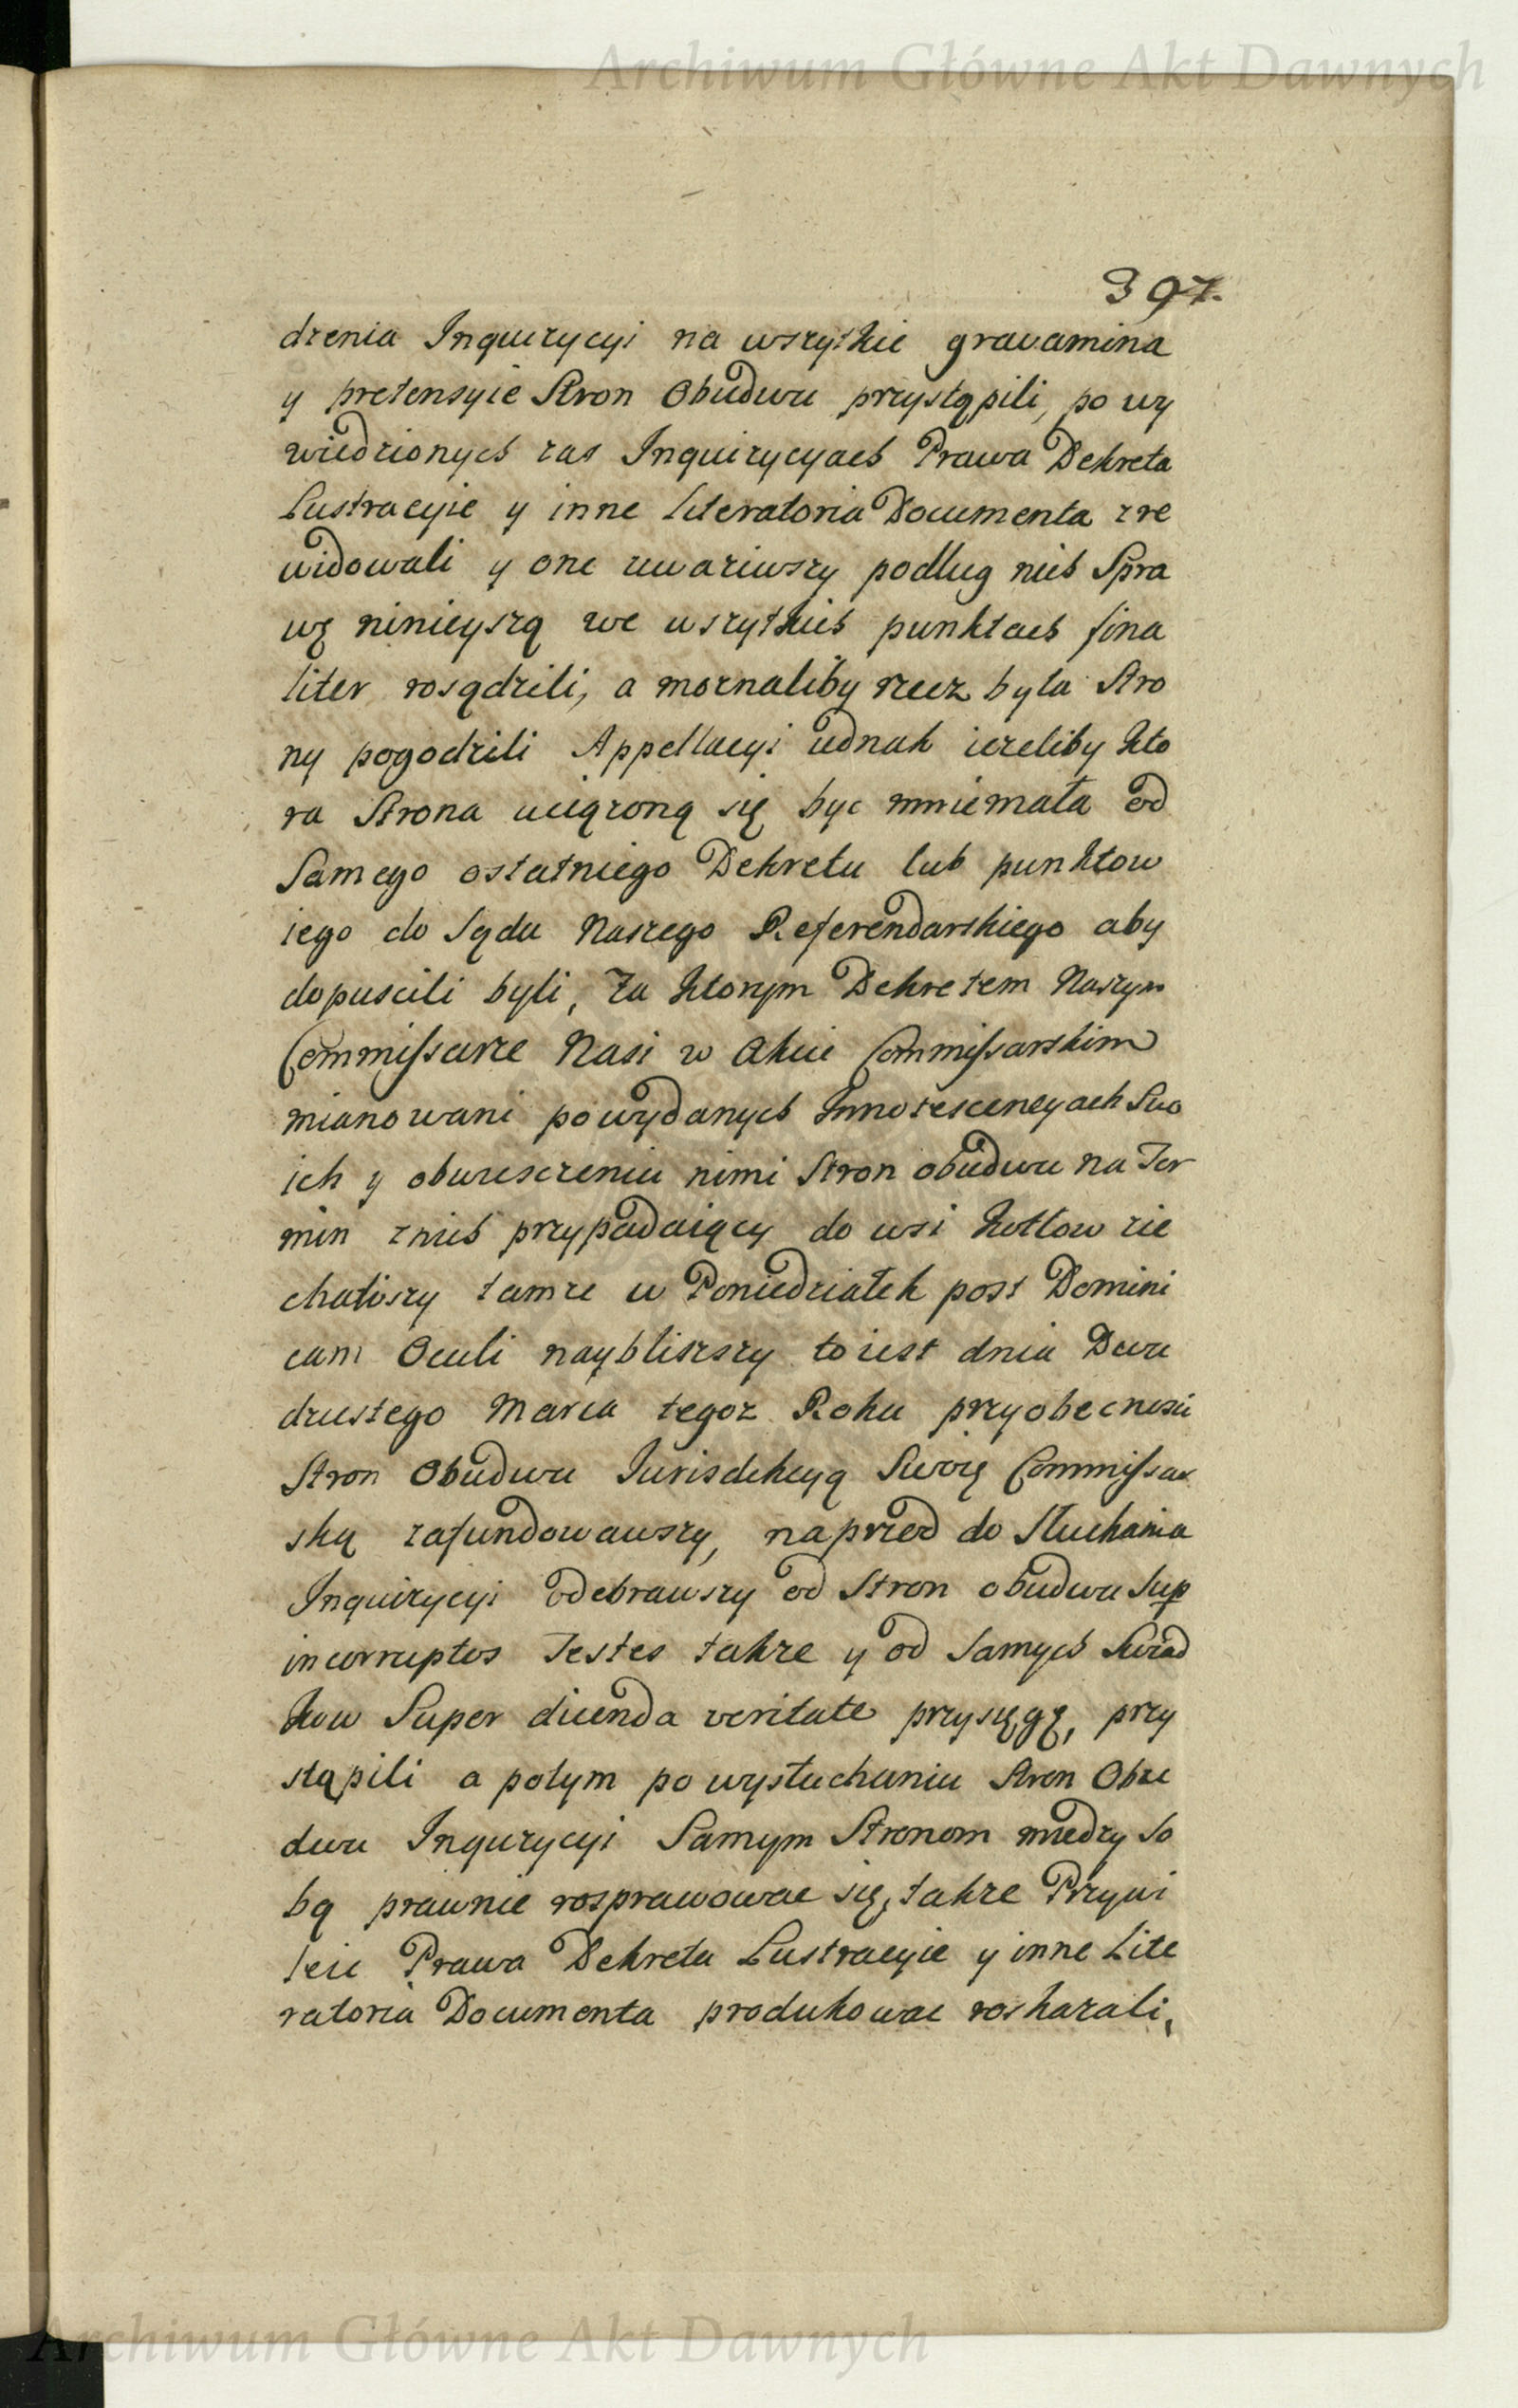 Archiwum Główne Akt Dawnych
397.
dzenia Inquizycyi na wszytkie gravamina
y pretensyie Stron Obudwu przystąpili, po wy
wiedzionych zas Inquizycyach Prawa Dekreta
Lustracyie y inne literatoria Documenta zre
widowali y one uwaziwszy podlug nich Spra
wę ninieyszą we wszytkich punktach fina
liter rosądzili, a moznaliby rzecz byla Stro
ny pogodzili Appellacyi iednak iezeliby kto
ra Strona uciązoną się byc mniemała od
Samego ostatniego Dekretu lub punktow
iego do Sądu Naszego Referendarskiego aby
dopuscili byli, Za ktorym Dekretem Naszym
Commissarze Nasi w Akcie Commissarskim
mianowani po wydanych Innotescencyach Swo
ich y obwieszczeniu nimi Stron obudwu na Ter
min znich przypadaiący do wsi Kotlow zie
chawszy tamze w Poniedziałek post Domini
cam Oculi naybliszszy to iest dnia Dwu
dziestego Marca tegoz Roku przyobecnosci
Stron Obudwu Jurisdikcyą Swoię Commissar
ską zafundowawszy, naprzod do Słuchania
Inquizycyi odebrawszy od Stron obudwu Sup
incorruptos Testes takze y od Samych Swiad
kow Super dicenda veritate przysięgę, przy
stąpili a potym po wysłuchaniu Stron Obu
dwu Inquzycyi Samym Stronom miedzy So
bą prawnie rosprawowac się, takze Przywi
leie Prawa Dekreta Lustracyie y inne Lite
ratoria Documenta produkowac roskazali,
Archiwum Główne Akt Dawnych